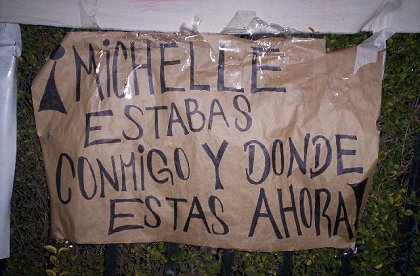 ¡MICHELLE
ESTABAS
CONMIGO Y DONDE
ESTAS AHORA!